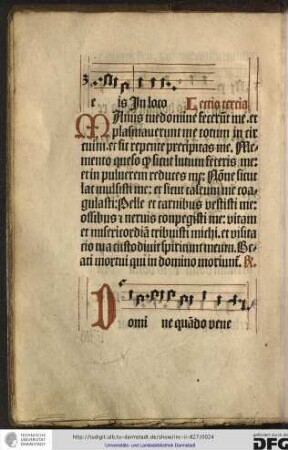 e is In loco Lectio tercia
Manus tue domine fecerūt me et
plasmauerunt me totum in cir
cuitu: et sic repente precipitas me. Me
mento queso ꝙ sicut lutum feceris me:
et in puluerem reduces me. Nōne sicut
lac mulsisti me: et sicut caseum me coa
gulasti: Pelle et carnibus vestisti me:
ossibus et neruis compegisti me: vitam
et misericordiā tribuisti michi. et visita
cio tua custodiuit spiritum meum. Be
ati mortui qui in domino moriunt̄. R.
Domi ne quādo vene
http://tudigit.ulb.tu-darmstadt.de/show/inc-iii-827/0024
Universitäts- und Landesbibliothek Darmstadt
TECHNISCHE
UNIVERSITÄT
DARMSTADT
DFG